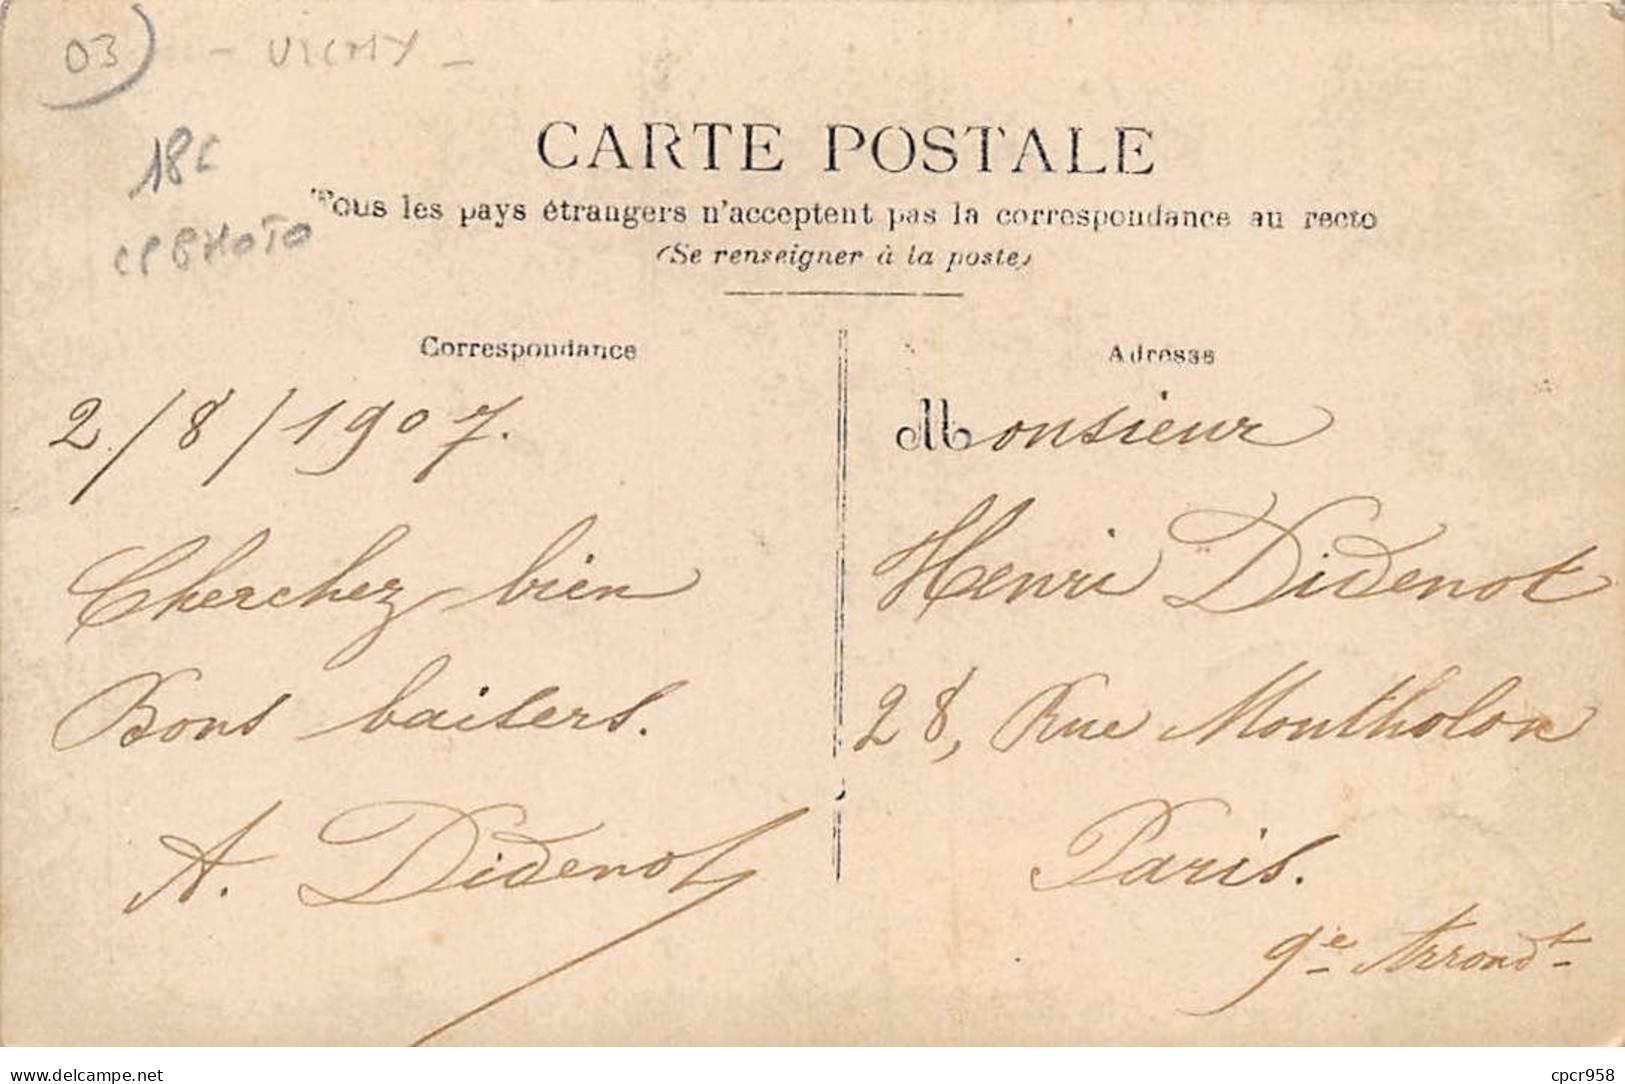 03) - VICHY -
18€
CP PHOTO
CARTE POSTALE
Tous les pays étrangers n'acceptent pas la correspondance au recto
(Se renseigner à la poste)
Correspondance
2/8/1907.
Cherchez bien
Bons baisers.
A. Didenot
Adresse
Monsieur
Henri Didenot
28, Rue Montholon
Paris.
9e Arrondt
www.delcampe.net
cpcr958